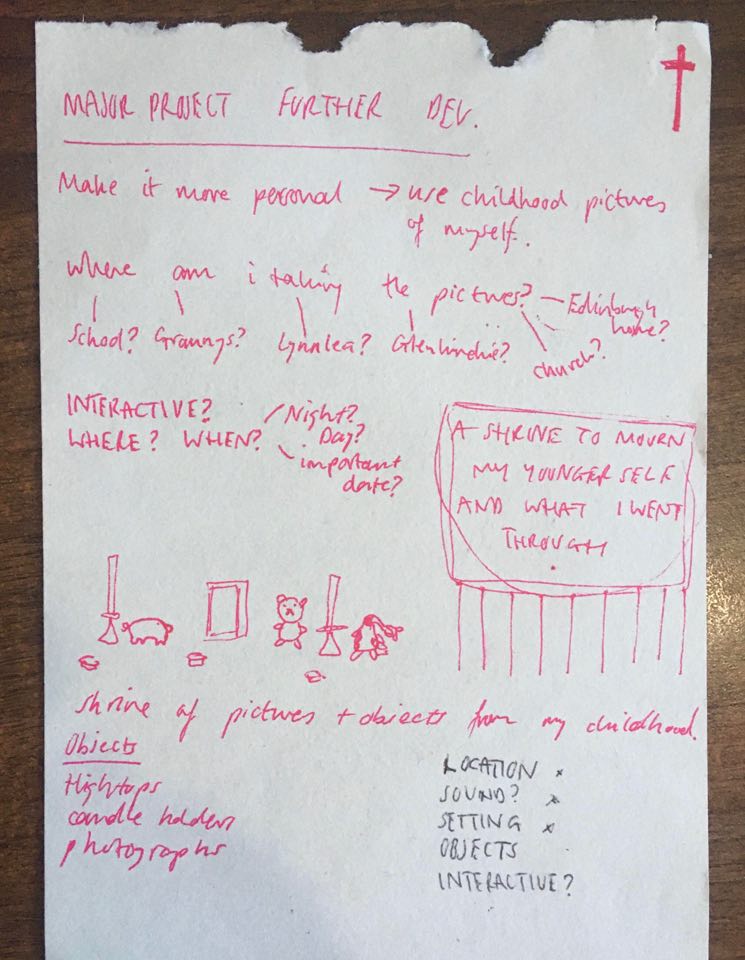 MAJOR PROJECT FURTHER DEV.
Make it more personal → use childhood pictures
of myself.
where am i taking the pictures?
Edinburgh
home?
School? Grannys? Lynnlea? Glenlindie?
church?
INTERACTIVE?
WHERE? WHEN?
Night?
Day?
important
date?
A SHRINE TO MOURN
MY YOUNGER SELF
AND WHAT I WENT
THROUGH
shrine of pictures + objects from my childhood.
Objects
Hightops
candle holders
photographs
LOCATION
SOUND?
SETTING
OBJECTS
INTERACTIVE?